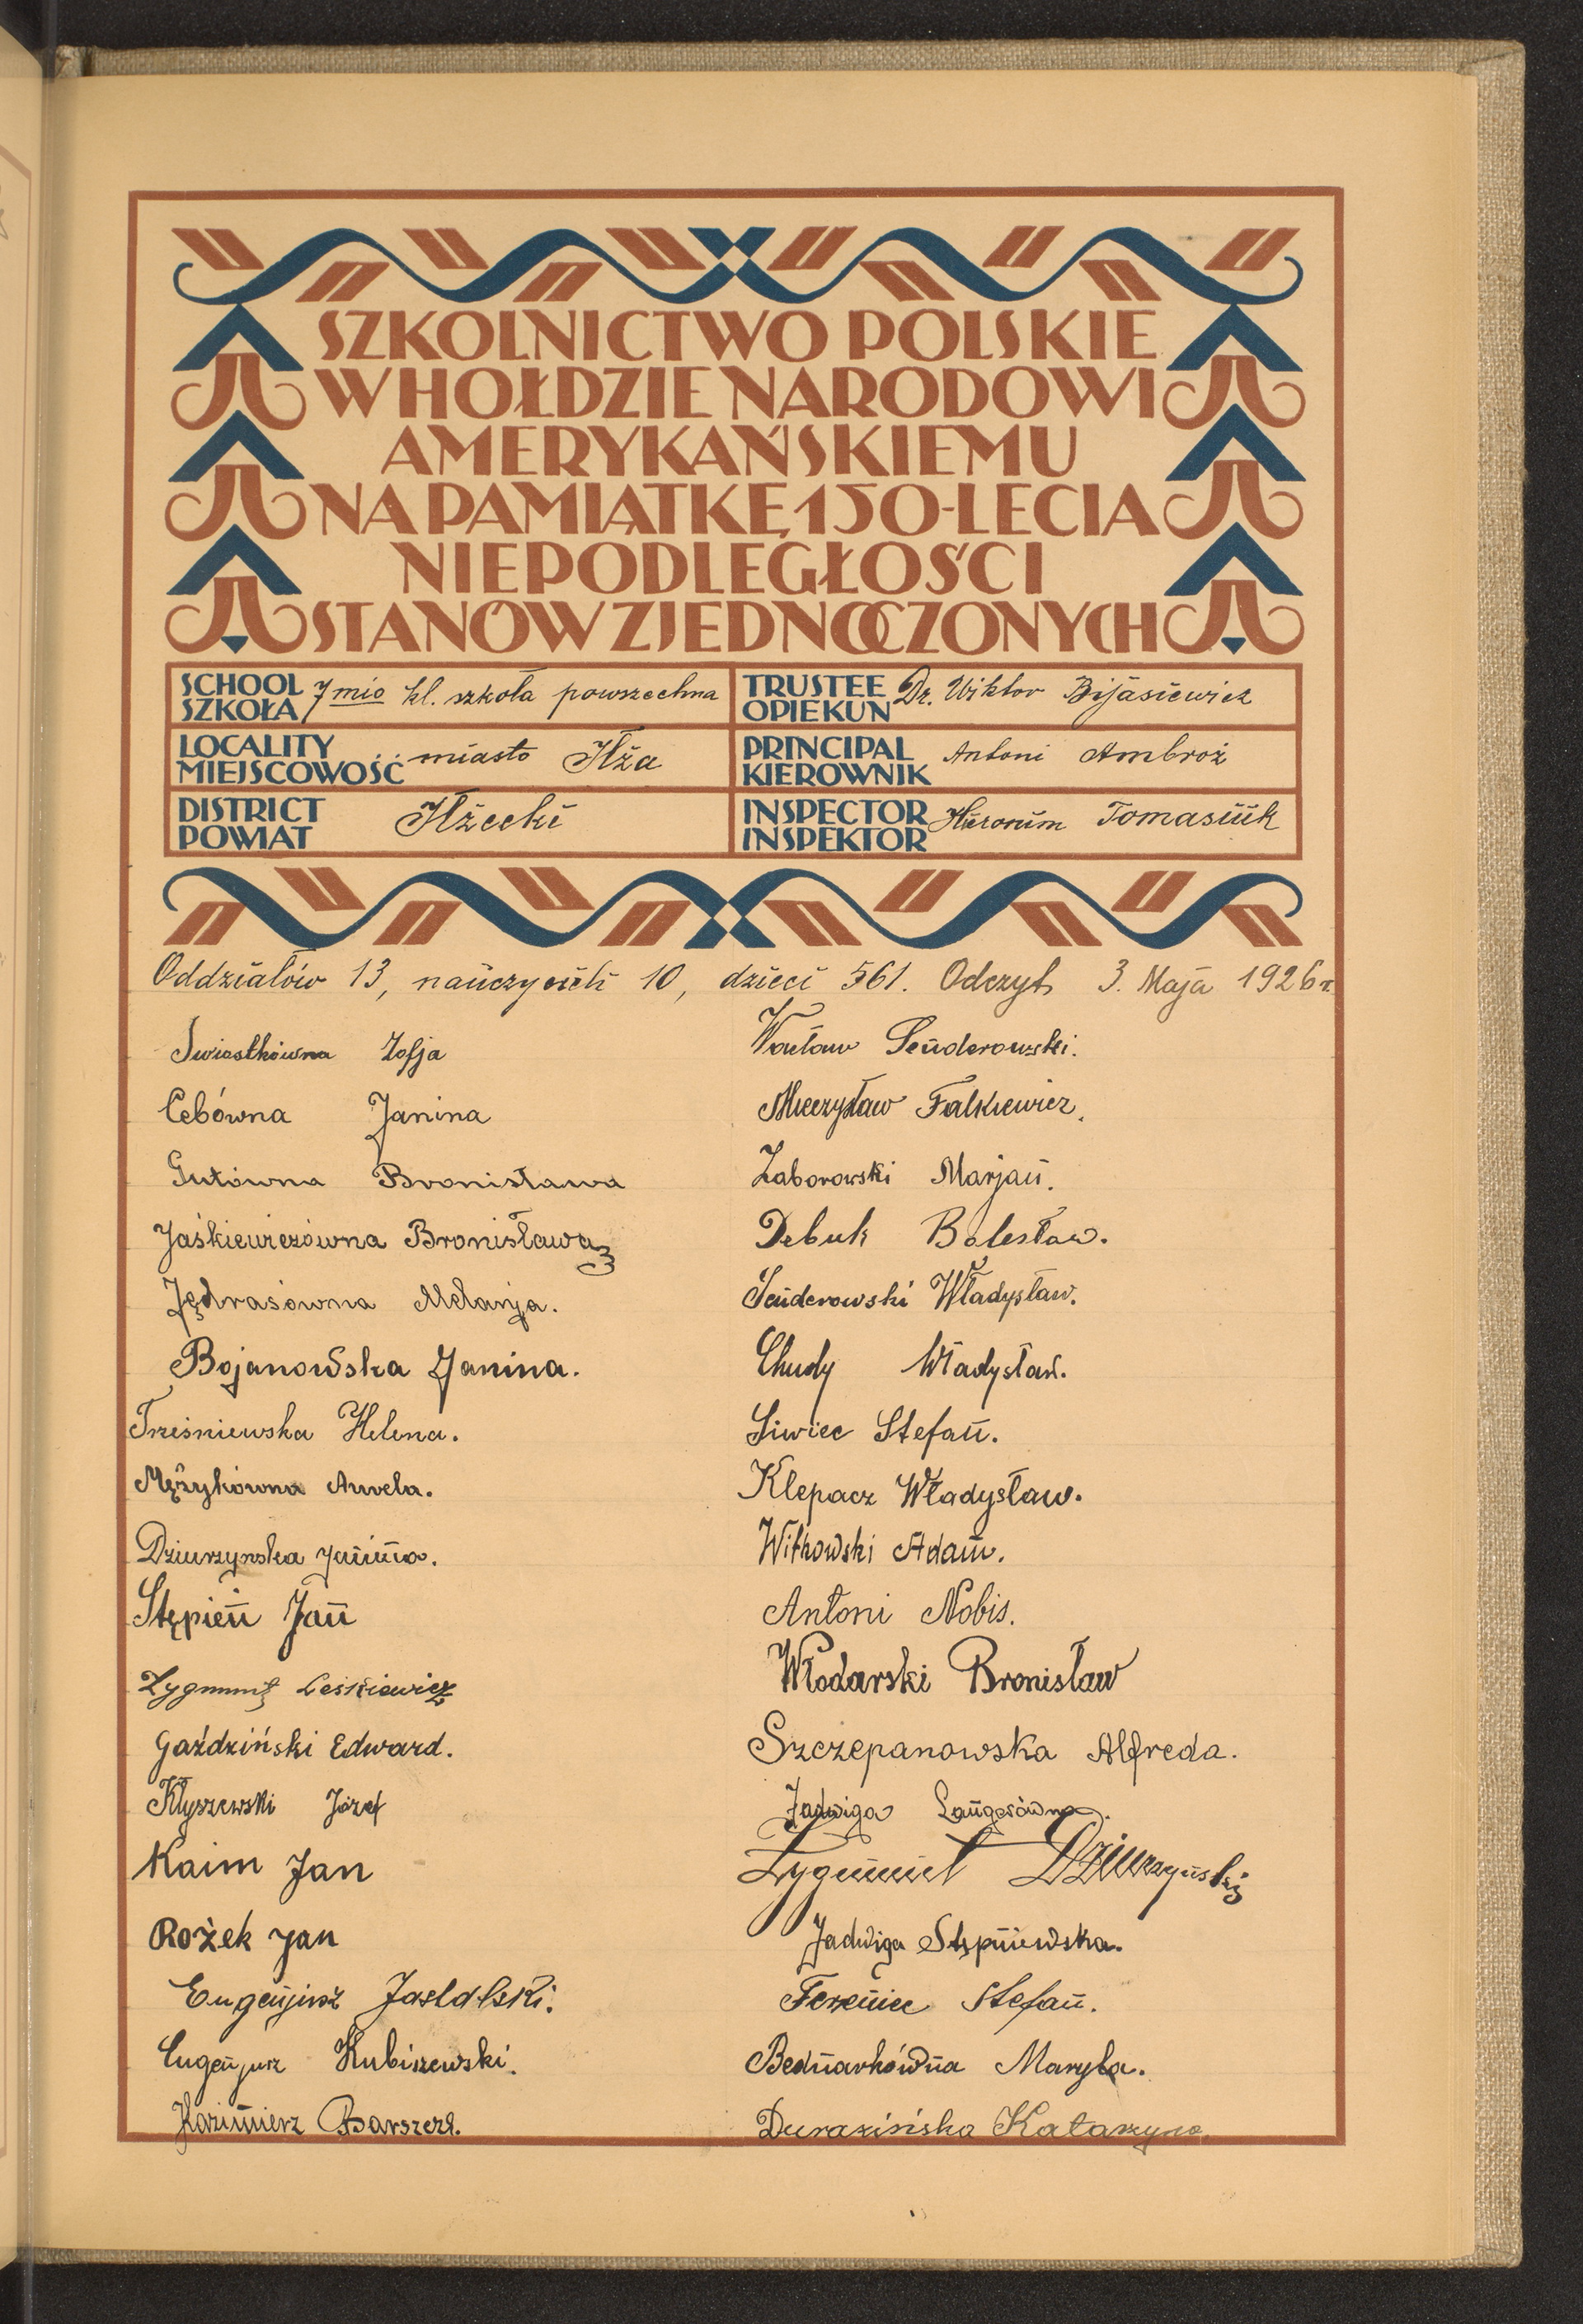 SZKOLNICTWO POLSKIE
W HOŁDZIE NARODOWI
AMERYKAŃSKIEMU
NA PAMIĄTKĘ 150-LECIA
NIEPODLEGŁOŚCI
STANÓW ZJEDNOCZONYCH
SCHOOL
SZKOŁA
7mio kl. szkoła powszechna
TRUSTEE
OPIEKUN
Dr. Wiktor Bijasiewicz
LOCALITY
MIEJSCOWOŚĆ
miasto Iłża
PRINCIPAL
KIEROWNIK
Antoni Ambroż
DISTRICT
POWIAT
Iłżecki
INSPECTOR
INSPEKTOR
Hieronim Tomasiuk
Oddziałów 13, nauczycieli 10, dzieci 561. Odczyt 3. Maja 1926 r.
Świostkówna Zofja
Cebówna Janina
Gutówna Bronisława
Jaśkiewiczówna Bronisława
Jędrasówna Melanja.
Bojanowska Janina.
Trześniewska Helena.
Mężykówna Anela.
Dziurzynska Janina.
Stępień Jan
Zygmunt Leśkiewicz
Gaździński Edward.
Kłyszewski Józef
Kaim Jan
Rożek Jan
Eugenjusz Jastalski.
Eugenjusz Kubiszewski.
Kazimierz Barszcz.
Wacław Senderowski.
Mieczysław Falkiewicz.
Zaborowski Marjan.
Debuk Bolesław.
Senderowski Władysław.
Chudy Władysław.
Siwiec Stefan.
Klepacz Władysław.
Witkowski Adam.
Antoni Nobis.
Włodarski Bronisław
Szczepanowska Alfreda.
Jadwiga Langesówna.
Zygmunt Dziurzyński
Jadwiga Stępniewska.
Fereniec Stefan.
Bednarkówna Maryla.
Durazińska Katarzyna.